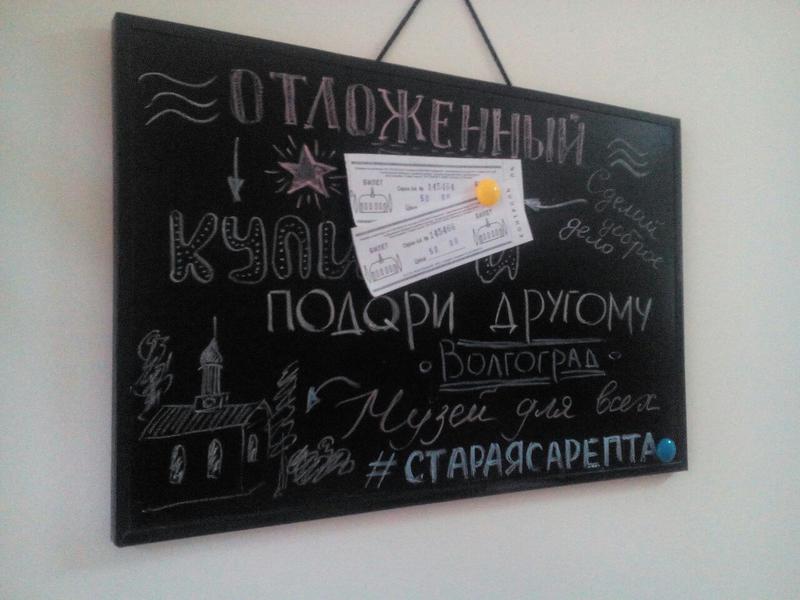 ОТЛОЖЕННЫЙ
БИЛЕТ
Серия АА № 145464
Цена 50 00
КОНТРОЛЬ
БИЛЕТ
Серия АА № 145466
БИЛЕТ
Цена 50 00
Сделай
доброе
дело
КУПИ
И
ПОДАРИ ДРУГОМУ
ВОЛГОГРАД
Музей для всех
#СТАРАЯСАРЕПТА